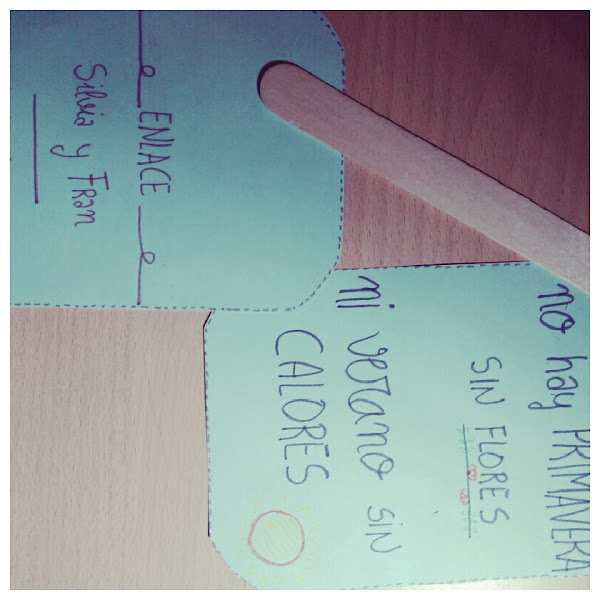 ENLACE
Silvia y Fran
no hay PRIMAVERA
SIN FLORES
ni verano SIN
CALORES